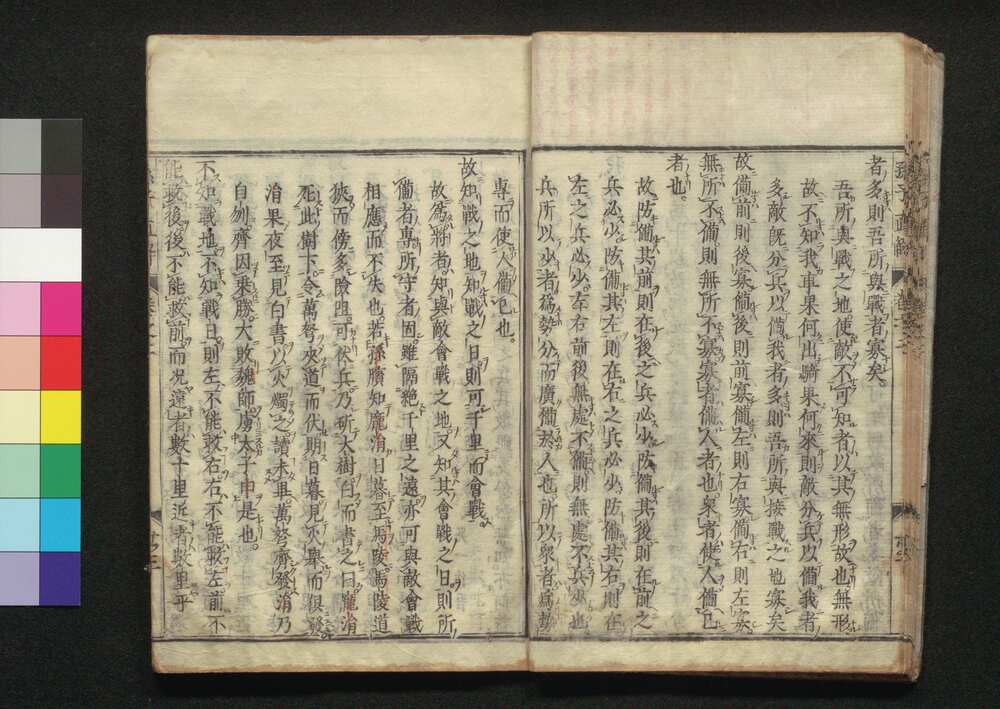 者多則吾所與戰者寡矣。
吾所與戰之地使敵不可知者以其無形故也無形
故不知我車果何出騎果何來則敵分兵以備我者
多敵既分兵以備我者多則吾所與接戰之地寡矣
故備前則後寡備後則前寡備左則右寡備右則左寡
無所不備則無所不寡寡者備人者也衆者使人備己
者也。
故防備其前則在後之兵必少防備其後則在前之
兵必少防備其左則在右之兵必少防備其右則在
左之兵必少左右前後無處不備則無處不兵少也
兵所以少者爲勢分而廣備於人也所以衆者爲勢
專而使人備己也。
故知戰之地知戰之日則可千里而會戰
故爲將者知與敵會戰之地又知其會戰之日則所
備者專所守者固雖隔絶千里之遠亦可與敵會戰
相應而不失也若孫臏知龐涓日暮至馬陵馬陵道
狹而傍多險阻可伏兵乃斫大樹白而書之曰龐涓
死此樹下令萬弩夾道而伏期日暮見火擧而俱發
涓果夜至見白書以火燭之讀未畢萬弩齊發涓乃
自刎齊因乘勝大敗魏師虜太子申是也。
不知戰地不知戰日則左不能救右右不能救左前不
能救後後不能救前而况遠者數十里近者數里乎